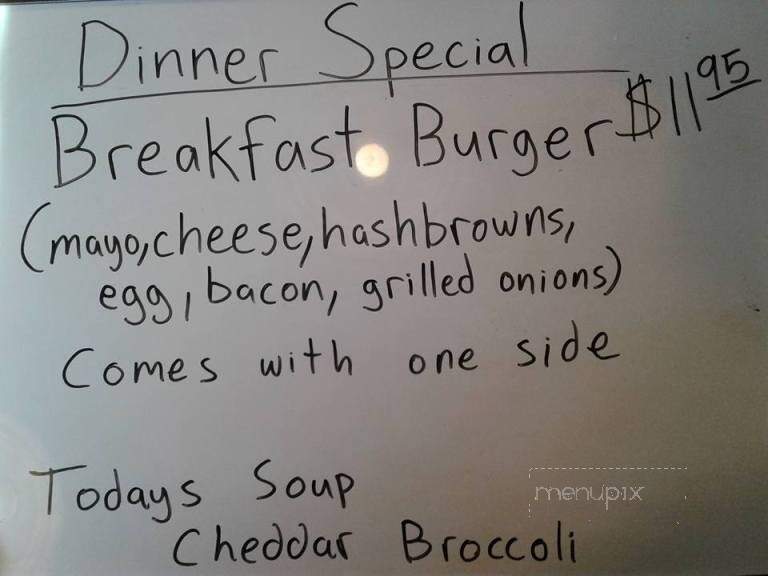 Dinner Special
Breakfast Burger $11 95
(mayo, cheese, hashbrowns,
egg, bacon, grilled onions)
Comes with one side
Todays Soup
menupix
Cheddar Broccoli